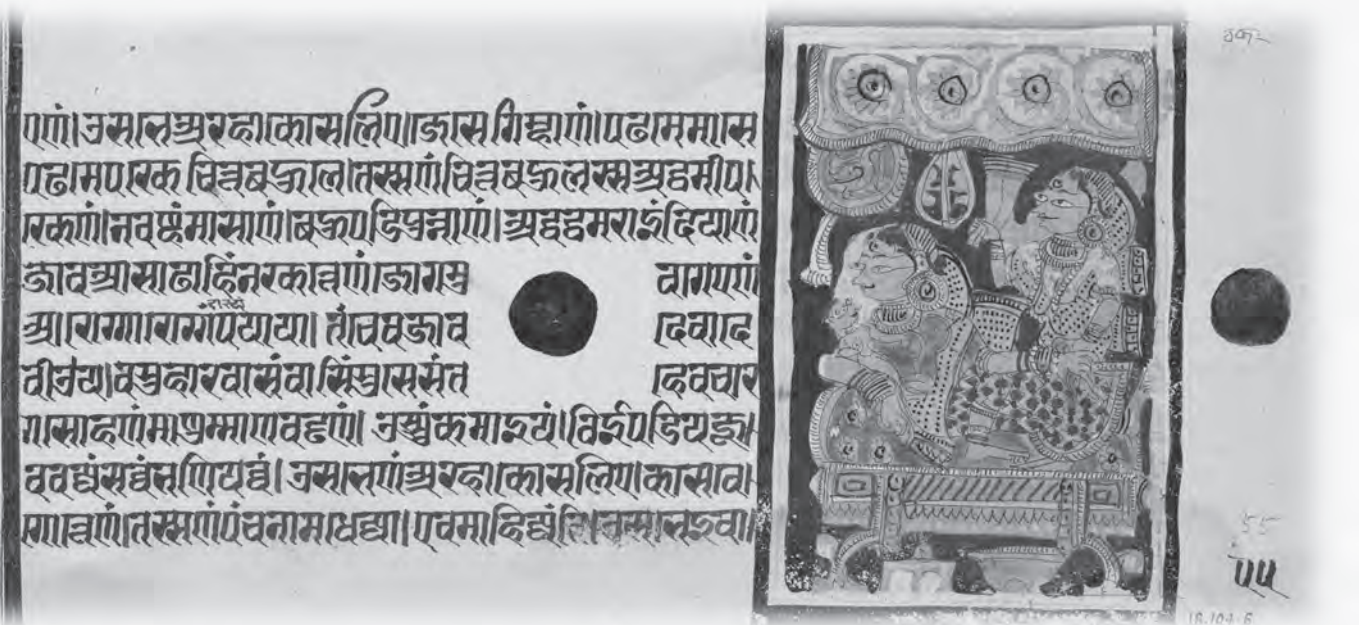 एणं। उसभे अरहा कोसलिए। जे से गिम्हाणं। पढमे मासे
पढमे पक्खे चित्तबहुले। तस्स णं चित्तबहुलस्स अट्ठमीप
क्खेणं। नवण्हं मासाणं। बहुपडिपुन्नाणं। अद्धट्ठमराइंदियाणं
जाव आसाढाहिं नक्खत्तेणं। जोगमु वागएणं
आरोग्गारोग्गं दारयं पयाया। तं चेव जाव देवा दे
वीउ य। वसुहारवासं वासिंसु। सेसं त हेव चार
गसोहणं माणुम्माणवड्ढणं। उस्सुंकमाइयं। ठिइपडियजू
ववज्जं सव्वं भाणियव्वं। उसभे णं अरहा कोसलिए। कासव
गोत्तेणं। तस्स णं पंच नामधेज्जा। एवमाहिज्जंति। उसभे इ वा।
55
18.104.6